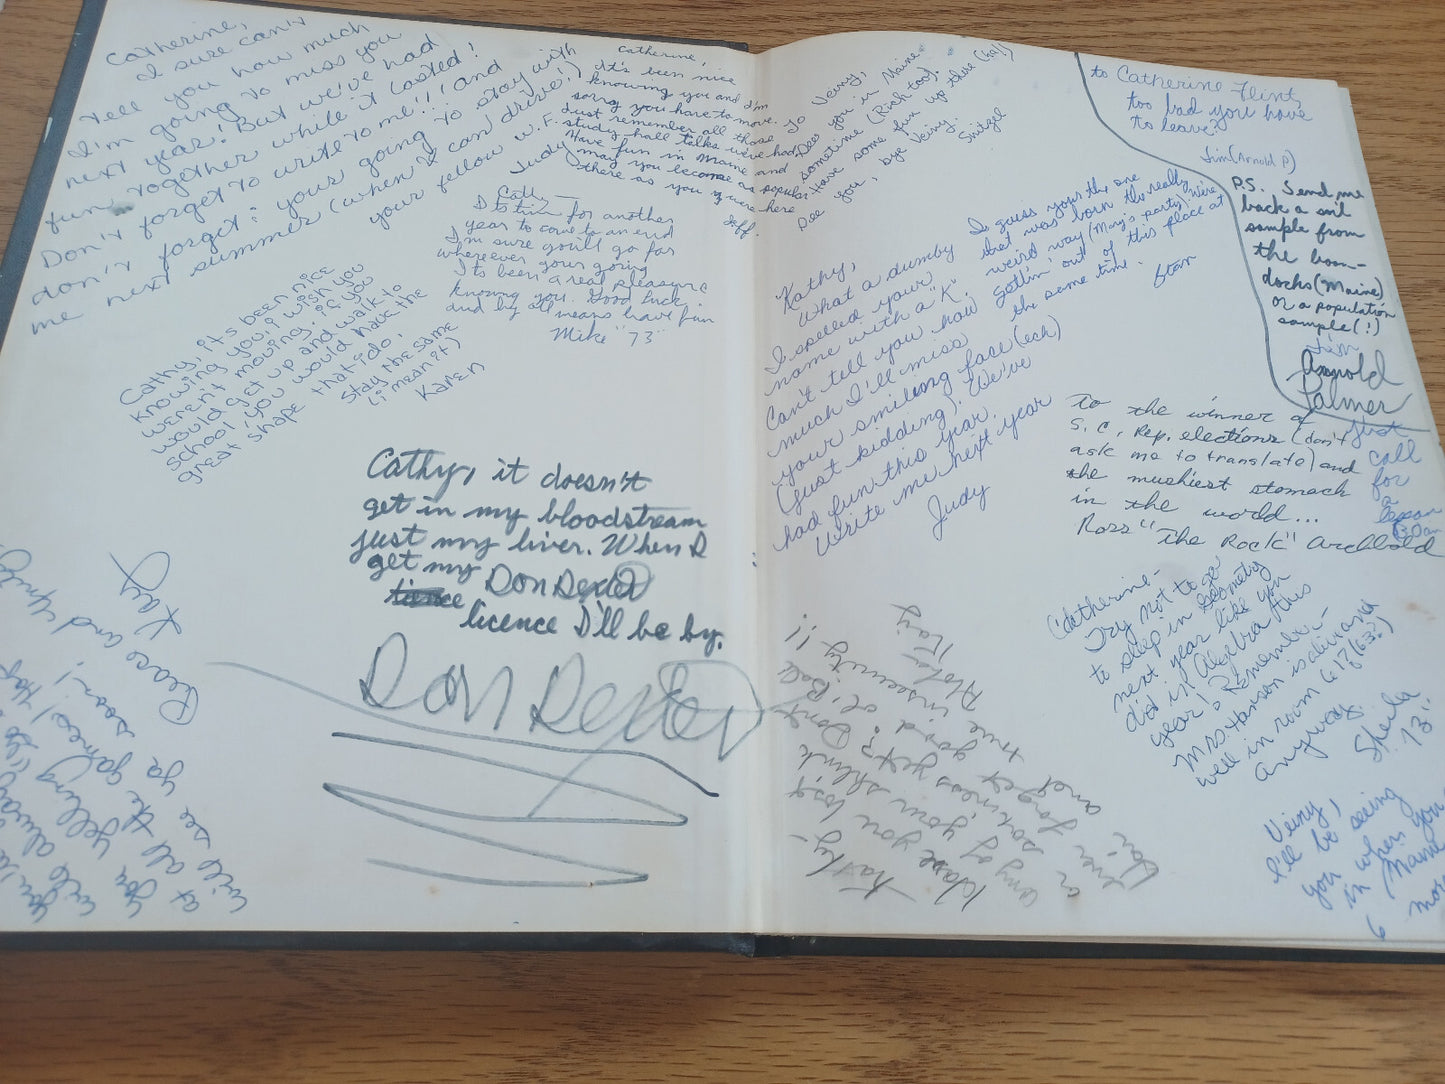 Catherine,
I sure can't
tell you how much
I'm going to miss you
next year! But we've had
fun together while it lasted!
Don't forget to write to me!!, and
don't forget: your going to stay with
me next summer (when I can drive!)
your fellow W.F.
Judy
Catherine,
It's been nice
knowing you and I'm
sorry you have to move.
Just remember all those
study hall talks we've had
Have fun in Maine and
may you become as popular
there as you were here
Jeff.
Cathy
I to trim for another
year to come to an end
I'm sure you'll go far
wherever your going
Its been a real pleasure
knowing you. Good luck
and by all means have fun
Mike "73"
Cathy, it's been nice
knowing you, I wish you
weren't moving, if you
would get up and walk to
school, you would have the
great shape that i do,
stay the same
(i mean it)
Karen
Cathy, it doesn't
get in my bloodstream
just my liver. When I
get my Don Dexter
licence I'll be by.
Don Dexter
will always
You yelling
at all the games! Hope
will see ya soon!
Peace and Unity
Kay
To Veiny,
See you in Maine
sometime (Rich too).
Have some fun up there (ha!)
See you, bye Veiny.
Snitzel
I guess your the one
that was born the really
weird way (Mary's party) We're
gettin' out of this place at
the same time.
Stan
Kathy,
What a dumby
I spelled your
name with a "K".
Can't tell you how
much I'll miss
your smiling face (ech)
(just kidding). We've
had fun this year.
Write me next year
Judy
to Catherine Flint,
too bad you have
to leave.
Jim (Arnold P)
P.S. Send me
back a soil
sample from
the boon-
docks (Maine)
or a population
sample (!)
Jim
Arnold
Palmer
just
call
for
a
To the winner of
S.C. Rep. elections (don't
ask me to translate) and
the mushiest stomach
in the world...
Ross "The Rock" Archbold
Catherine-
Try not to go
to sleep in Geometry
next year like you
did in Algebra this
year! Remember-
Mrs. Hanson is always
well in room 617, (63?)
anyway.
Sheila
"73"
Kathy-
Have you lost
any of your
or soreness yet? Don't
ever forget good ol' Bob
and true insecurity!!
Veiny,
I'll be seeing
you when you
in Maine
6 more